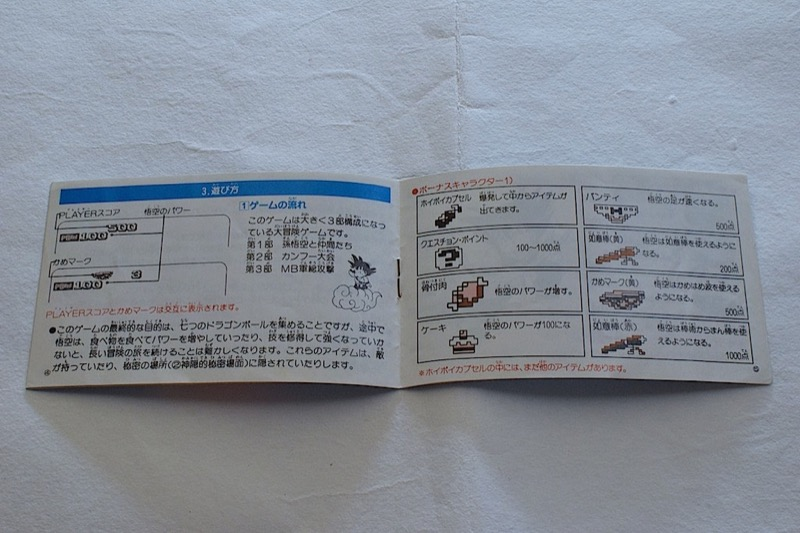 3.遊び方
PLAYERスコア
悟空のパワー
500
POW 100
かめマーク
3
POW 100
PLAYERスコアとかめマークは交互に表示されます。
1 ゲームの流れ
このゲームは大きく3部構成になっ
ている大冒険ゲームです。
第1部 孫悟空と仲間たち
第2部 カンフー大会
第3部 MB軍総攻撃
●このゲームの最終的な目的は、七つのドラゴンボールを集めることですが、途中で
悟空は、食べ物を食べてパワーを増やしていったり、技を修得して強くなっていか
ないと、長い冒険の旅を続けることは難かしくなります。これらのアイテムは、敵
が持っていたり、秘密の場所(②神隠的秘密場面)に隠されていたりします。
●ボーナスキャラクター1)
ホイポイカプセル
爆発して中からアイテムが
出てきます。
クエスチョン・ポイント
100〜1000点
骨付肉
悟空のパワーが増す。
ケーキ
悟空のパワーが100にな
る。
パンティ
悟空の足が速くなる。
500点
如意棒(黄)
悟空は如意棒を使えるように
なる。
200点
かめマーク(黄)
悟空はかめはめ波を使える
ようになる。
500点
如意棒(赤)
使えるようになる。
1000点
*ホイポイカプセルの中には、まだ他のアイテムがあります。